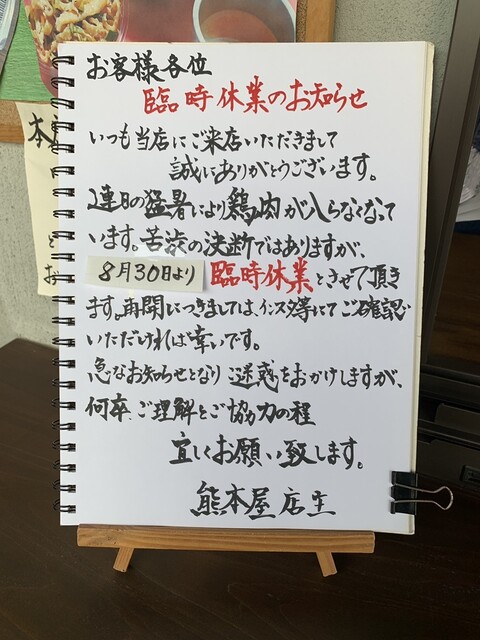 お客様各位
臨時休業のお知らせ
いつも当店にご来店いただきまして
誠にありがとうございます。
連日の猛暑により鶏肉が入らなくなって
います。苦渋の決断ではありますが、
8月30日より臨時休業とさせて頂き
ます。再開につきましては、インスタ等にてご確認
いただければ幸いです。
急なお知らせとなりご迷惑をおかけしますが、
何卒、ご理解とご協力の程
宜しくお願い致します。
熊本屋 店主
本